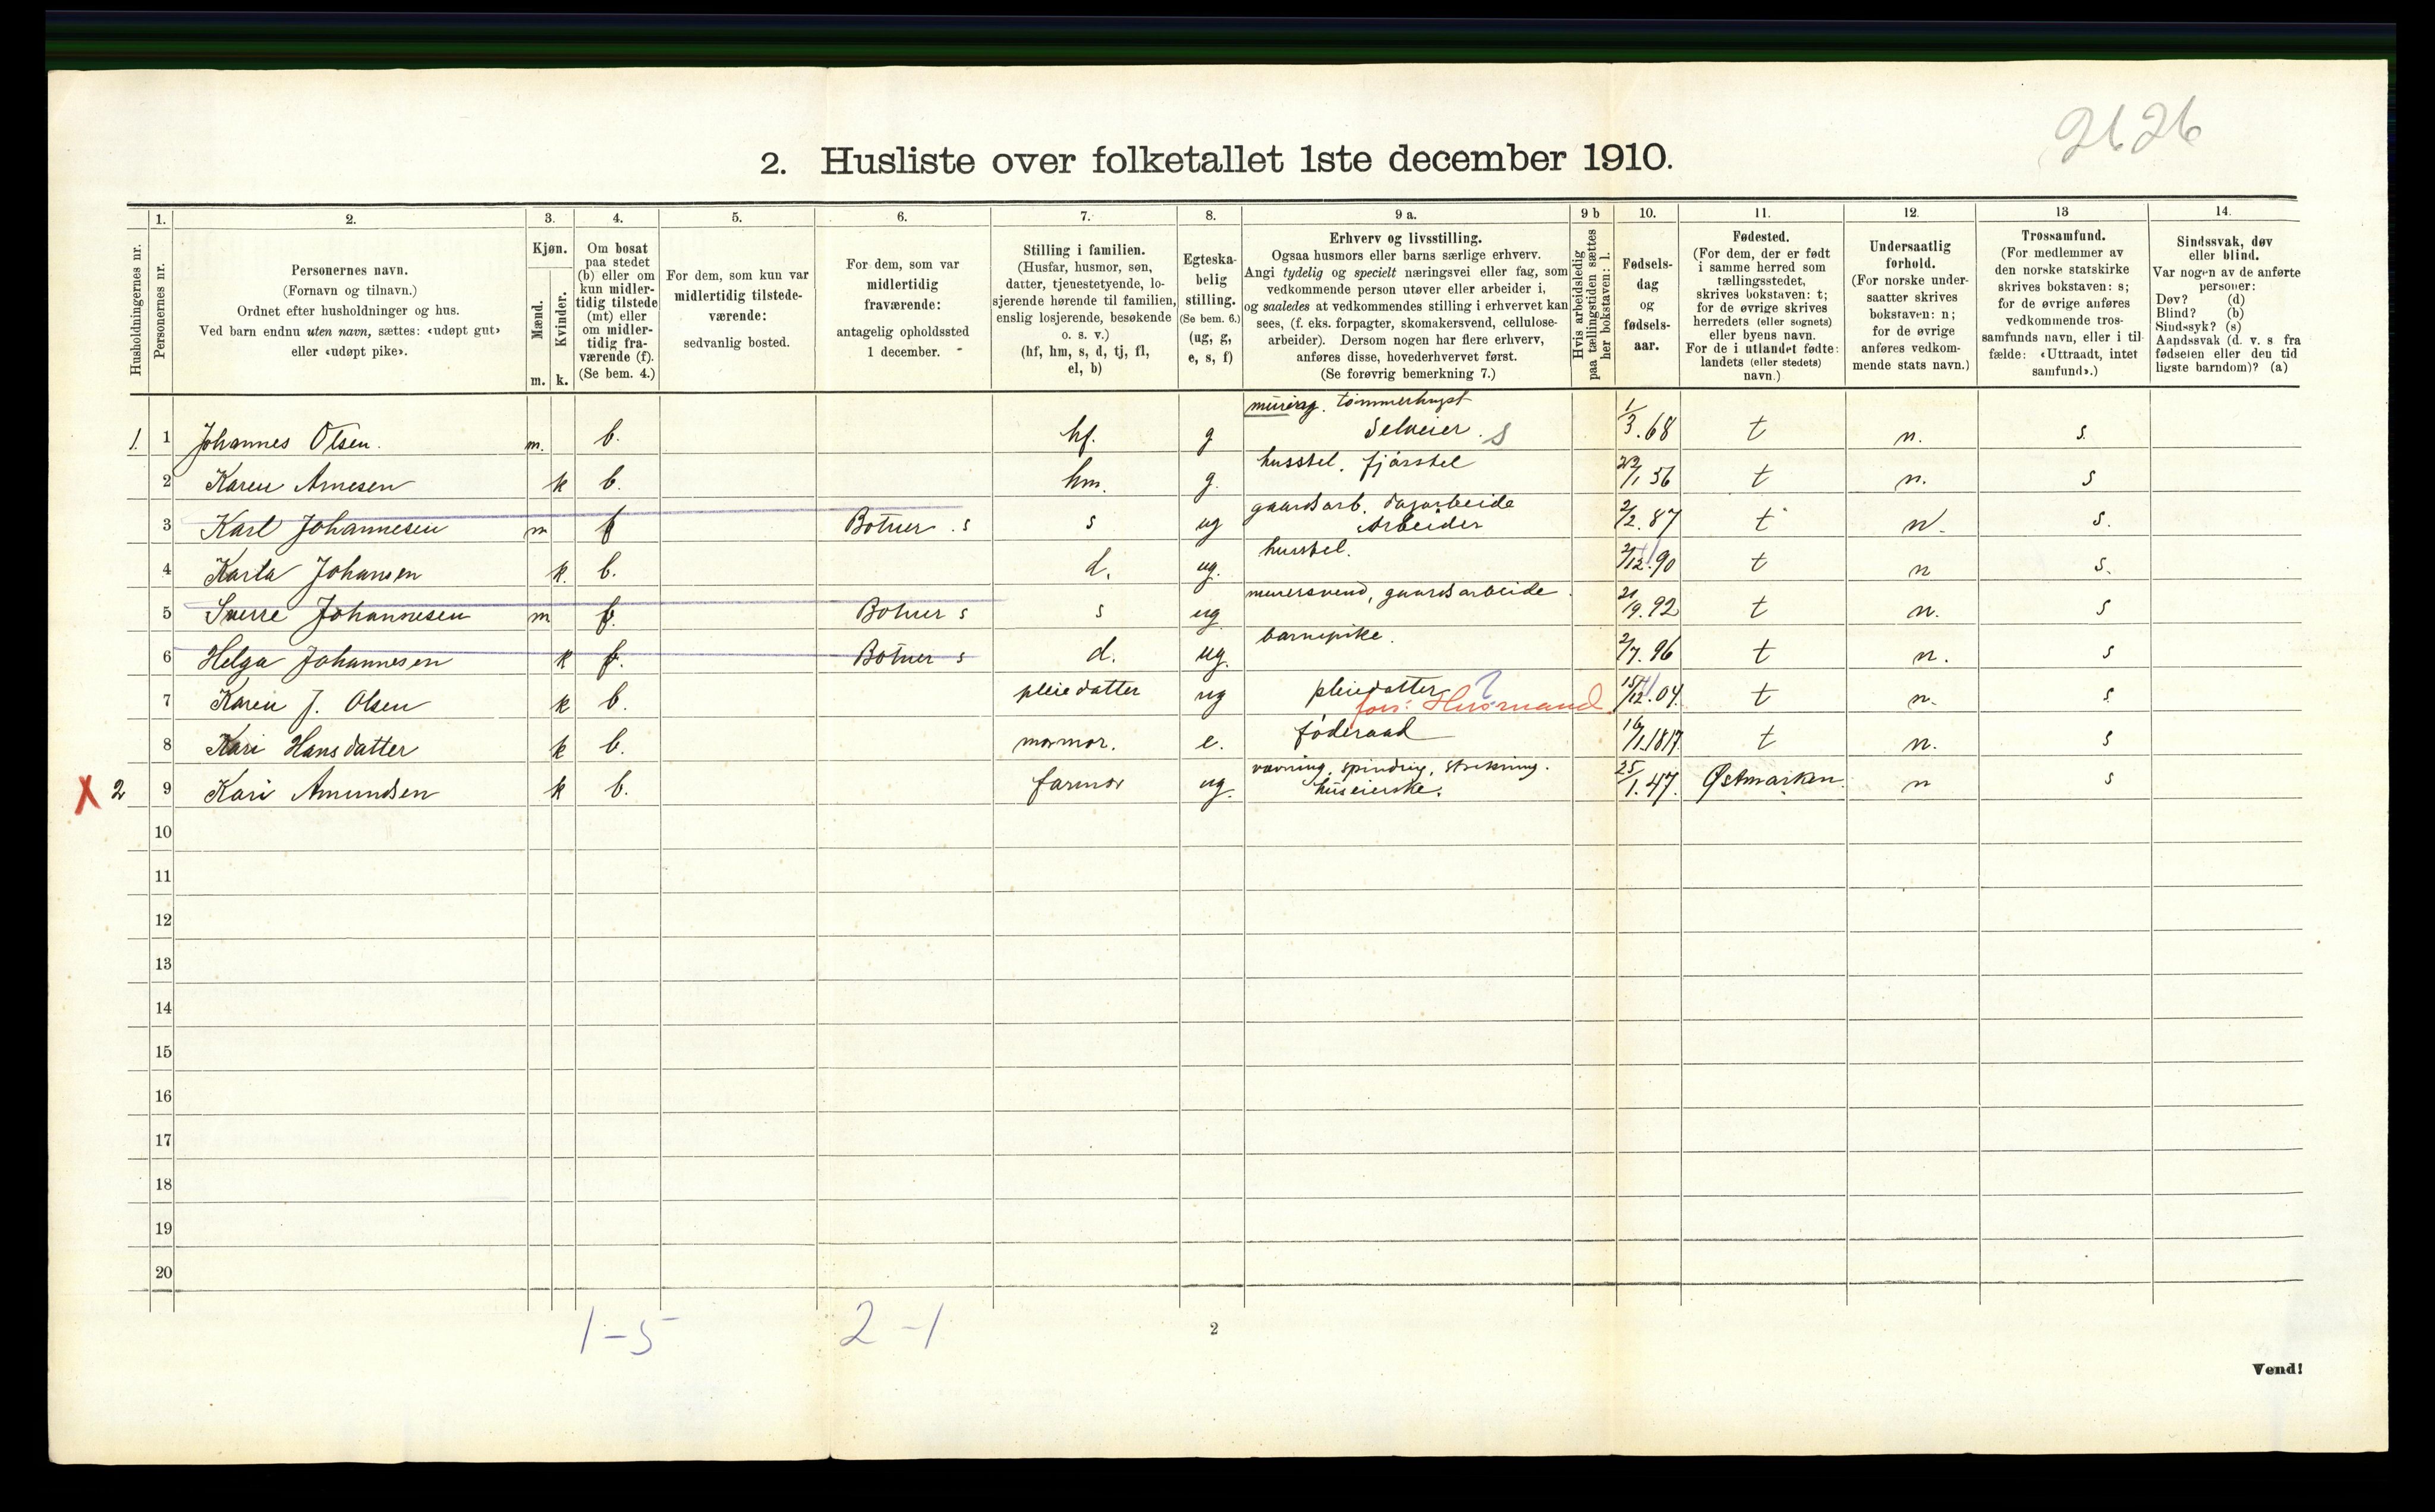 2626
2. Husliste over folketallet 1ste december 1910.
1. 2. 3. 4. 5. 6. 7. 8. 9 a. 9 b 10. 11. 12. 13 14.
Husholdningernes nr.
Personernes nr.
Personernes navn.
(Fornavn og tilnavn.)
Ordnet efter husholdninger og hus.
Ved barn endnu uten navn, sættes: «udøpt gut»
eller «udøpt pike».
Kjøn.
Mænd.
Kvinder.
m. k.
Om bosat
paa stedet
(b) eller om
kun midler-
tidig tilstede
(mt) eller
om midler-
tidig fra-
værende (f).
(Se bem. 4.)
For dem, som kun var
midlertidig tilstede-
værende:
sedvanlig bosted.
For dem, som var
midlertidig
fraværende:
antagelig opholdssted
1 december.
Stilling i familien.
(Husfar, husmor, søn,
datter, tjenestetyende, lo-
sjerende hørende til familien,
enslig losjerende, besøkende
o. s. v.)
(hf, hm, s, d, tj, fl,
el, b)
Egteska-
belig
stilling.
(Se bem. 6.)
(ug, g,
e, s, f)
Erhverv og livsstilling.
Ogsaa husmors eller barns særlige erhverv.
Angi tydelig og specielt næringsvei eller fag, som
vedkommende person utøver eller arbeider i,
og saaledes at vedkommendes stilling i erhvervet kan
sees, (f. eks. forpagter, skomakersvend, cellulose-
arbeider). Dersom nogen har flere erhverv,
anføres disse, hovederhvervet først.
(Se forøvrig bemerkning 7.)
Hvis arbeidsledig
paa tællingstiden sættes
her bokstaven: l.
Fødsels-
dag
og
fødsels-
aar.
Fødested.
(For dem, der er født
i samme herred som
tællingsstedet,
skrives bokstaven: t;
for de øvrige skrives
herredets (eller sognets)
eller byens navn.
For de i utlandet fødte:
landets (eller stedets)
navn.)
Undersaatlig
forhold.
(For norske under-
saatter skrives
bokstaven: n;
for de øvrige
anføres vedkom-
mende stats navn.)
Trossamfund.
(For medlemmer av
den norske statskirke
skrives bokstaven: s;
for de øvrige anføres
vedkommende tros-
samfunds navn, eller i til-
fælde: «Uttraadt, intet
samfund».)
Sindssvak, døv
eller blind.
Var nogen av de anførte
personer:
Døv? (d)
Blind? (b)
Sindssyk? (s)
Aandssvak (d. v. s fra
fødselen eller den tid
ligste barndom)? (a)
tømmerhugst
1. 1 Johannes Olsen. m. b. hf. g Selveier. S 1/3.68 t n. s.
husstel. fjøsstel
2 Karen Arnesen k b. hm. g. 22/1 56 t n. s
gaardsarb. dagarbeide
3 Karl Johannesen m f Botner s s ug Arbeider 2/2.87 t n. s.
husstel.
4 Karla Johansen k. b. d. ug. 2/12.90 t n s.
murersvend, gaardsarbeide.
5 Sverre Johannesen m f. Botner s s ug 21/9.92 t n. s
barnepike.
6 Helga Johannesen k f. Botner s d. ug. 2/7.96 t n. s
7 Karen J. Olsen k b. pleiedatter ug pleiedatter ? 15/12.04. t n. s
fors: Husmand
8 Kari Hansdatter k b. mormor. e. føderaad 16/1.1817. t n. s
vævning, spinding, strikning.
X 2 9 Kari Amundsen k b. farmor ug. huseierske. 25/1.47. Østmarken. n s
10
11
12
13
14
15
16
17
18
19
20
1-5 2-1
2
Vend!